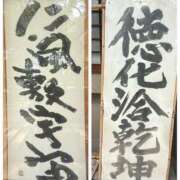 仁風敷宇宙
徳化洽乾坤